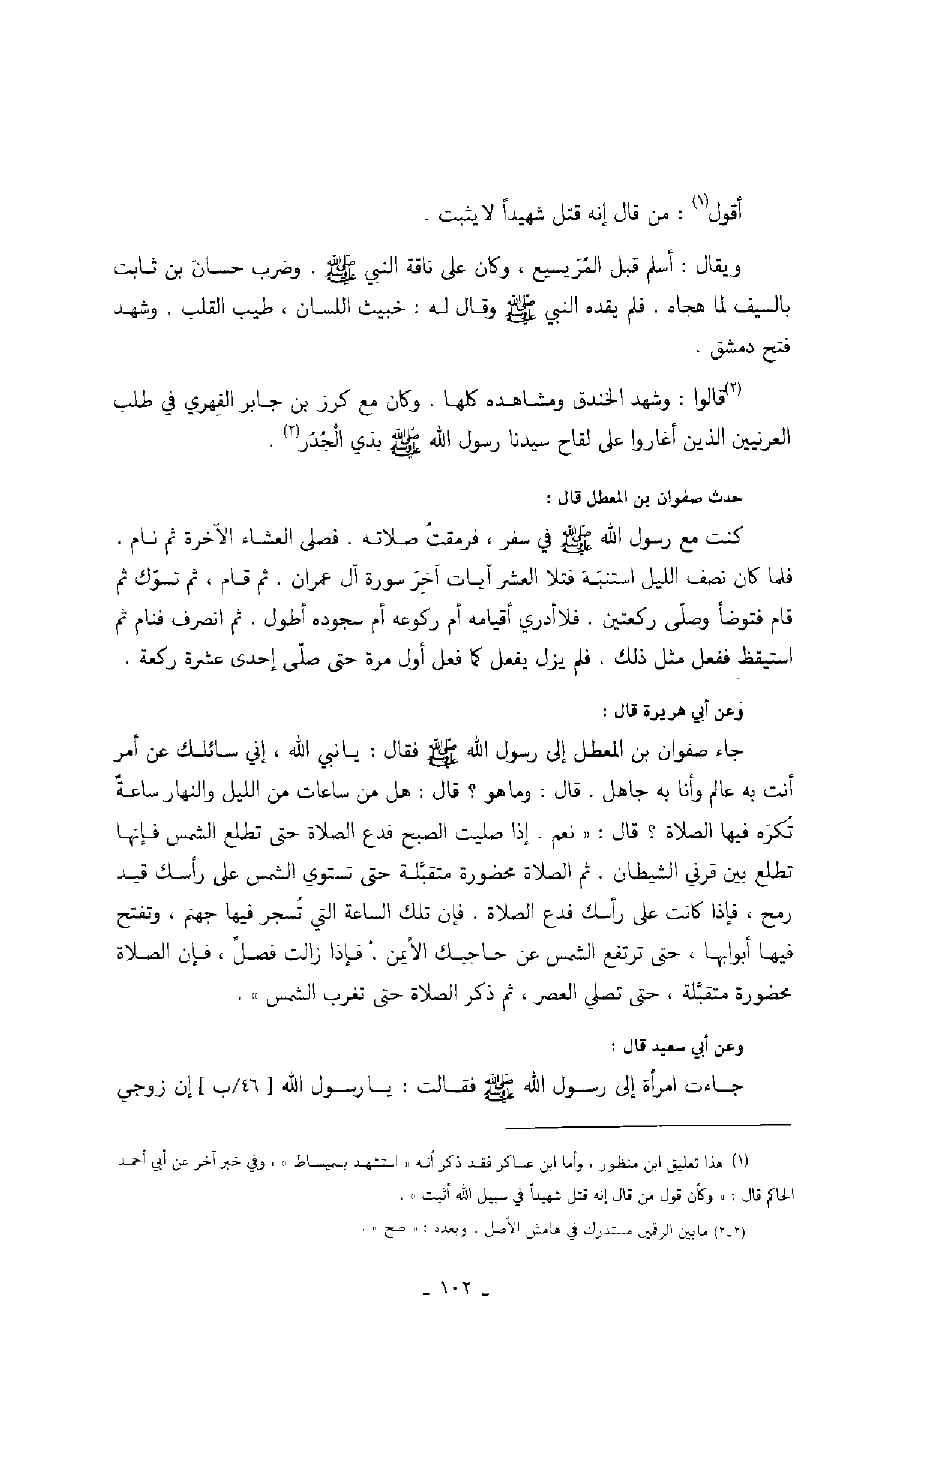 أقول(١) : من قال إنه قتل شهيداً لا يثبت .
ويقال : أسلم قبل المُرَيسيع ، وكان على ناقة النبي ﷺ . وضرب حسان بن ثابت
بالسيف لما هجاه . فلم يقده النبي ﷺ وقال له : خبيث اللسان ، طيب القلب . وشهد
فتح دمشق .
(٢)قالوا : وشهد الخندق ومشاهده كلها . وكان مع كرز بن جابر الفهري في طلب
العرنيين الذين أغاروا على لقاح سيدنا رسول الله ﷺ بذي الْجُدْر(٢) .
حدث صفوان بن المعطل قال :
كنت مع رسول الله ﷺ في سفر ، فرمقتُ صلاته . فصلى العشاء الآخرة ثم نام .
فلما كان نصف الليل استنبَهَ فتلا العشر آيات آخِرَ سورة آل عمران . ثم قام ، ثم تسوّك ثم
قام فتوضأ وصلّى ركعتين . فلاأدري أقيامه أم ركوعه أم سجوده أطول . ثم انصرف فنام ثم
استيقظ ففعل مثل ذلك . فلم يزل يفعل كما فعل أول مرة حتى صلّى إحدى عشرة ركعة .
وعن أبي هريرة قال :
جاء صفوان بن المعطل إلى رسول الله ﷺ فقال : يانبي الله ، إني سائلك عن أمر
أنت به عالم وأنا به جاهل . قال : وماهو ؟ قال : هل من ساعات من الليل والنهار ساعةٌ
تُكرَه فيها الصلاة ؟ قال : « نعم . إذا صليت الصبح فدع الصلاة حتى تطلع الشمس فإنها
تطلع بين قرني الشيطان . ثم الصلاة محضورة متقبَّلة حتى تستوي الشمس على رأسك قيد
رمح ، فإذا كانت على رأسك فدع الصلاة . فإن تلك الساعة التي تُسجر فيها جهنم ، وتفتح
فيها أبوابها ، حتى ترتفع الشمس عن حاجبك الأيمن . فإذا زالت فصلِّ ، فإن الصلاة
محضورة متقبَّلة ، حتى تصلي العصر ، ثم ذكر الصلاة حتى تغرب الشمس » .
وعن أبي سعيد قال :
جاءت امرأة إلى رسول الله ﷺ فقالت : يارسول الله [ ٤٦/ب ] إن زوجي
(١) هذا تعليق ابن منظور ، وأما ابن عساكر فقد ذكر أنه « استشهد بسميساط » ، وفي خبر آخر عن أبي أحمد
الحاكم قال : « وكأن قول من قال إنه قتل شهيداً في سبيل الله أثبت » .
(٢-٢) مابين الرقمين مستدرك في هامش الأصل . وبعده : « صح » .
ـ ١٠٢ ـ